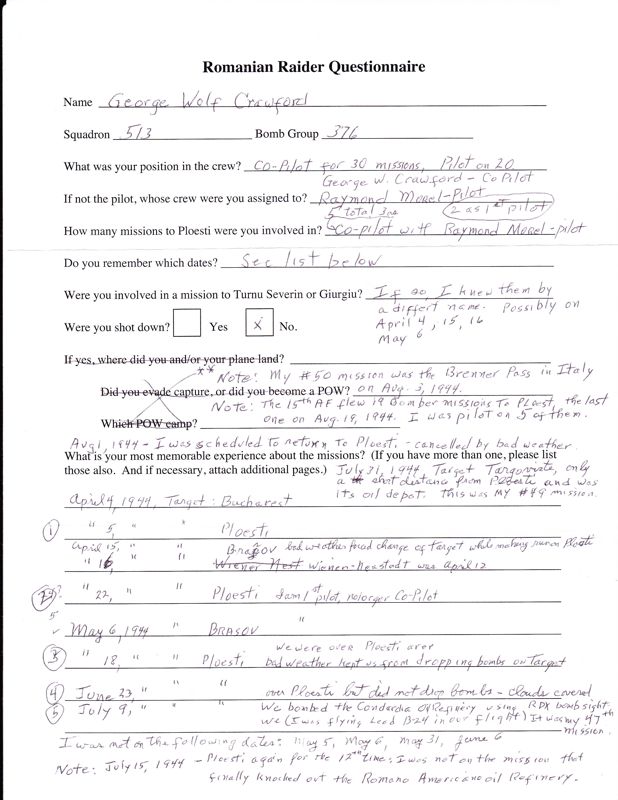 Romanian Raider Questionnaire
Name George Wolf Crawford
Squadron 513 Bomb Group 376
What was your position in the crew? Co-Pilot for 30 missions, Pilot on 20
George W. Crawford - CoPilot
If not the pilot, whose crew were you assigned to? Raymond Morel - Pilot
5 total 2 as 1st pilot
How many missions to Ploesti were you involved in? Co-pilot with Raymond Morel - pilot
Do you remember which dates? See list below
Were you involved in a mission to Turnu Severin or Giurgiu? If so, I knew them by
a differt name. Possibly on
Were you shot down? Yes X No. April 4, 15, 16
May 6
If yes, where did you and/or your plane land?
** Note: My #50 mission was the Brenner Pass in Italy
Did you evade capture, or did you become a POW? on Aug. 3, 1944.
Note: The 15th AF flew 19 bomber missions to Ploesti, the last
Which POW camp? one on Aug. 19, 1944. I was pilot on 5 of them.
Aug 1, 1944 - I was scheduled to return to Ploesti - cancelled by bad weather.
What is your most memorable experience about the missions? (If you have more than one, please list
those also. And if necessary, attach additional pages.) July 31, 1944, Target Targoviste, only
a short distance from Ploesti and was
its oil depot. This was my #49 mission.
April 4, 1944, Target: Bucharest
1 " 5, " " Ploesti
April 15, " " Brasov bad weather forced change of target while making run on Ploesti
" 16, " " Wiener Nest Wienen-Neastadt was April 12
2 ? " 22, " " Ploesti I am 1st pilot, no longer Co-Pilot
5
✓ May 6, 1944 " BRASOV "
we were over Ploesti area
3 " 18, " " Ploesti bad weather kept us from dropping bombs on Target
4 June 23, " " over Ploesti but did not drop bombs - clouds covered
5 July 9, " " We bombed the Concordia Oil Refinery using RDX bomb sight.
we (I was flying lead B24 in our flight) It was my 47th
mission.
I was not on the following dates: May 5, May 6, May 31, June 6
Note: July 15, 1944 - Ploesti again for the 12th time: I was not on the mission that
finally knocked out the Romano Americano oil Refinery.